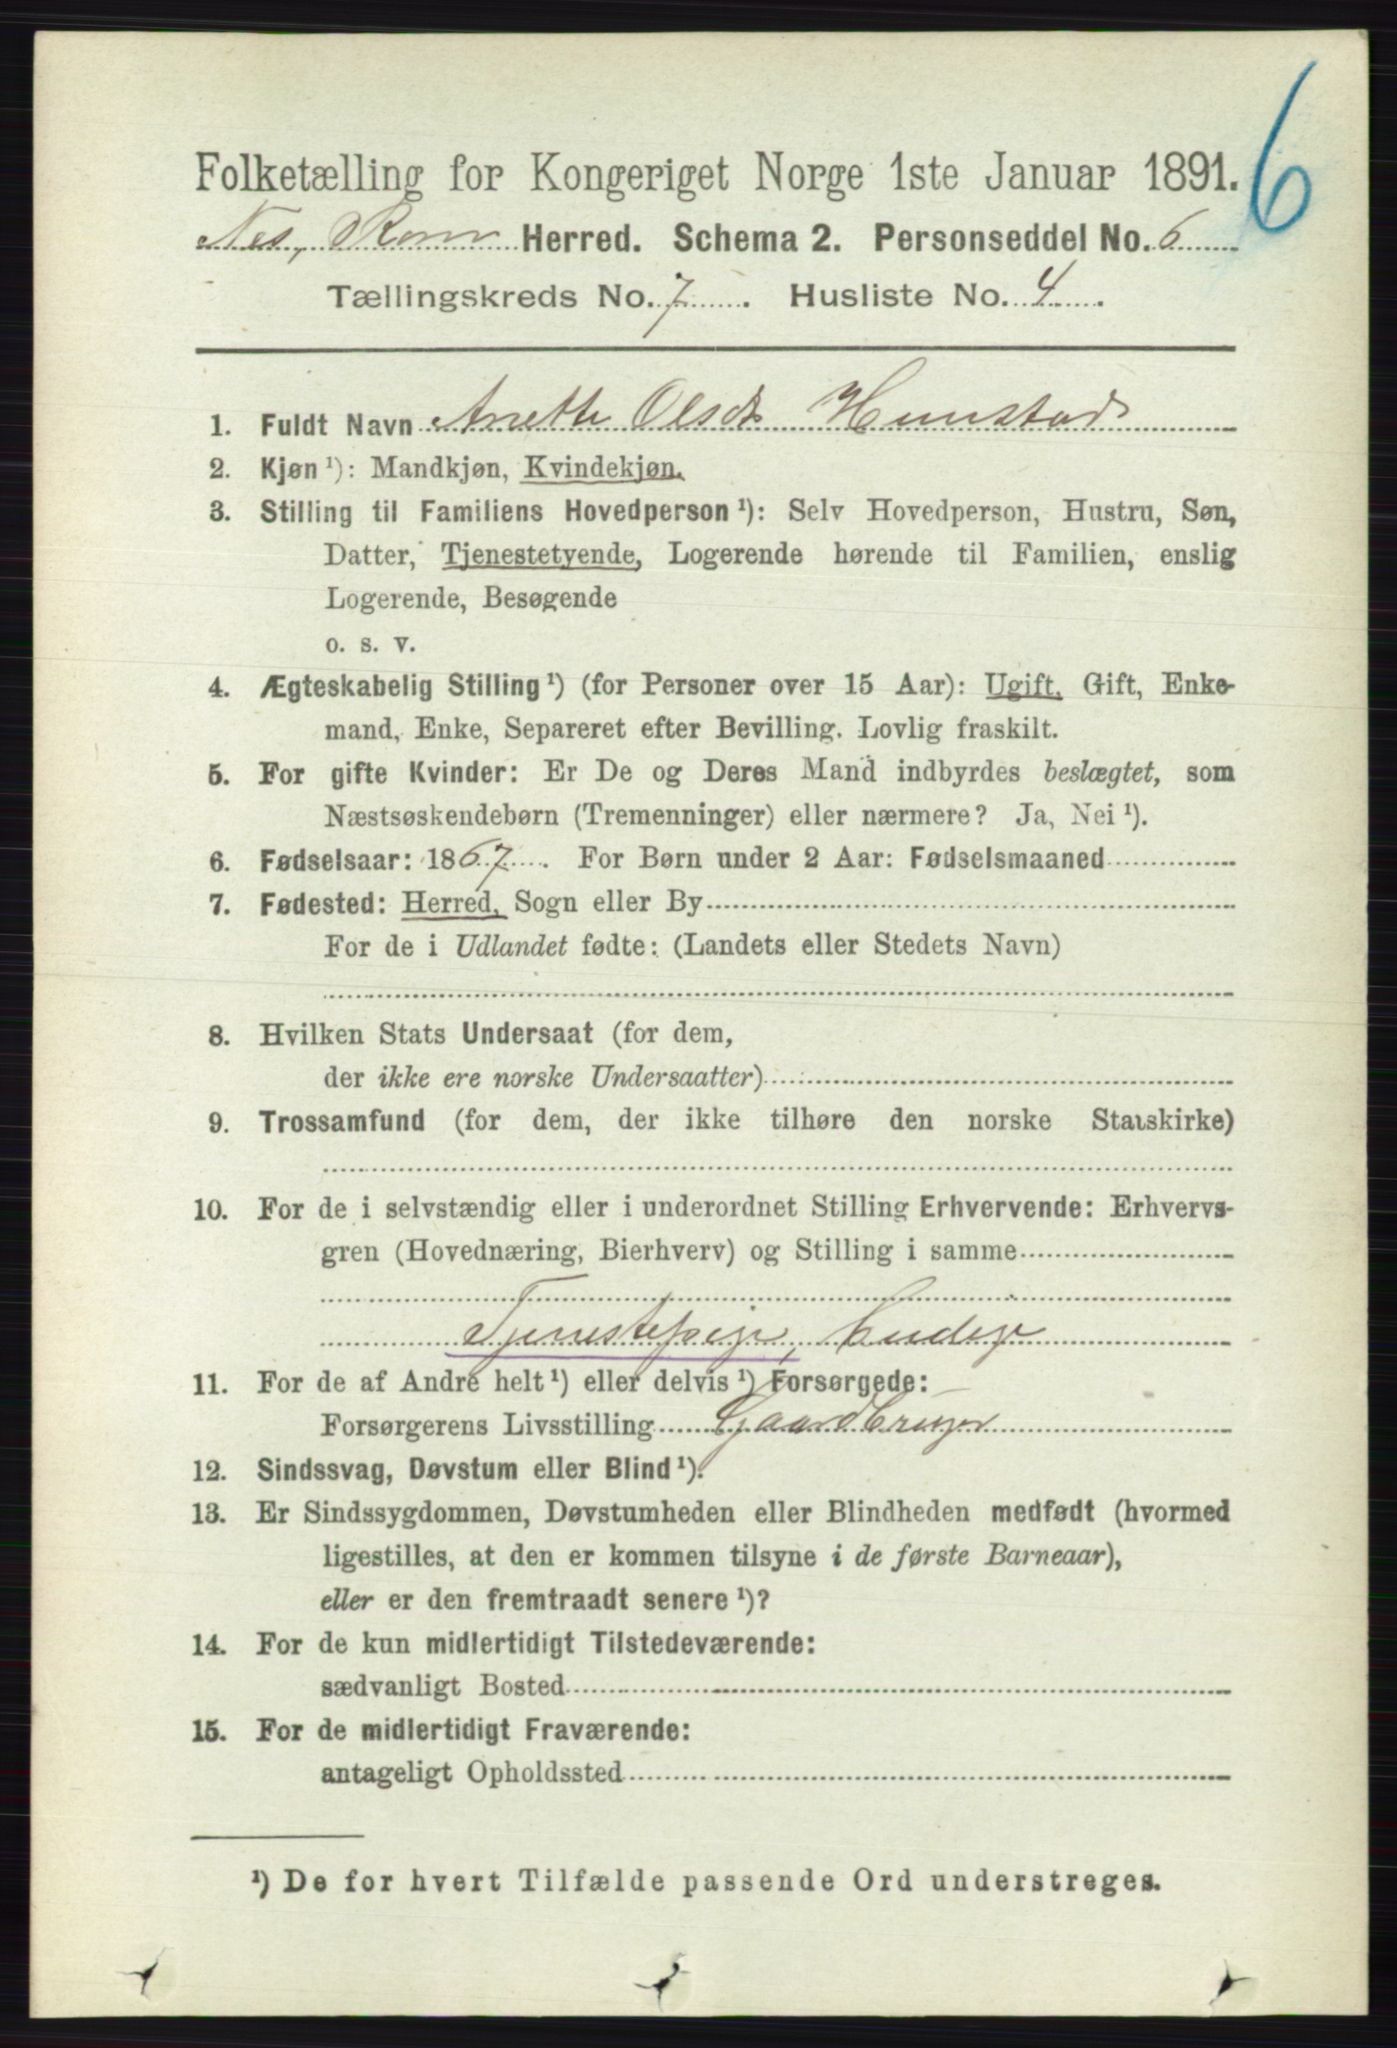 6
Folketælling for Kongeriget Norge 1ste Januar 1891.
Nes, Rom Herred. Schema 2. Personseddel No. 6
Tællingskreds No. 7. Husliste No. 4.
1. Fuldt Navn Anette Olsdt Hunstad
2. Kjøn ¹): Mandkjøn, Kvindekjøn.
3. Stilling til Familiens Hovedperson ¹): Selv Hovedperson, Hustru, Søn,
Datter, Tjenestetyende, Logerende hørende til Familien, enslig
Logerende, Besøgende
o. s. v.
4. Ægteskabelig Stilling ¹) (for Personer over 15 Aar): Ugift, Gift, Enke-
mand, Enke, Separeret efter Bevilling. Lovlig fraskilt.
5. For gifte Kvinder: Er De og Deres Mand indbyrdes beslægtet, som
Næstsøskendebørn (Tremenninger) eller nærmere? Ja, Nei ¹).
6. Fødselsaar: 1867. For Børn under 2 Aar: Fødselsmaaned
7. Fødested: Herred, Sogn eller By
For de i Udlandet fødte: (Landets eller Stedets Navn)
8. Hvilken Stats Undersaat (for dem,
der ikke ere norske Undersaatter)
9. Trossamfund (for dem, der ikke tilhøre den norske Statskirke)
10. For de i selvstændig eller i underordnet Stilling Erhvervende: Erhvervs-
gren (Hovednæring, Bierhverv) og Stilling i samme
Tjenestepige,
11. For de af Andre helt ¹) eller delvis ¹) Forsørgede:
Forsørgerens Livsstilling Gaardbruger
12. Sindssvag, Døvstum eller Blind ¹).
13. Er Sindssygdommen, Døvstumheden eller Blindheden medfødt (hvormed
ligestilles, at den er kommen tilsyne i de første Barneaar),
eller er den fremtraadt senere ¹)?
14. For de kun midlertidigt Tilstedeværende:
sædvanligt Bosted
15. For de midlertidigt Fraværende:
antageligt Opholdssted
¹) De for hvert Tilfælde passende Ord understreges.